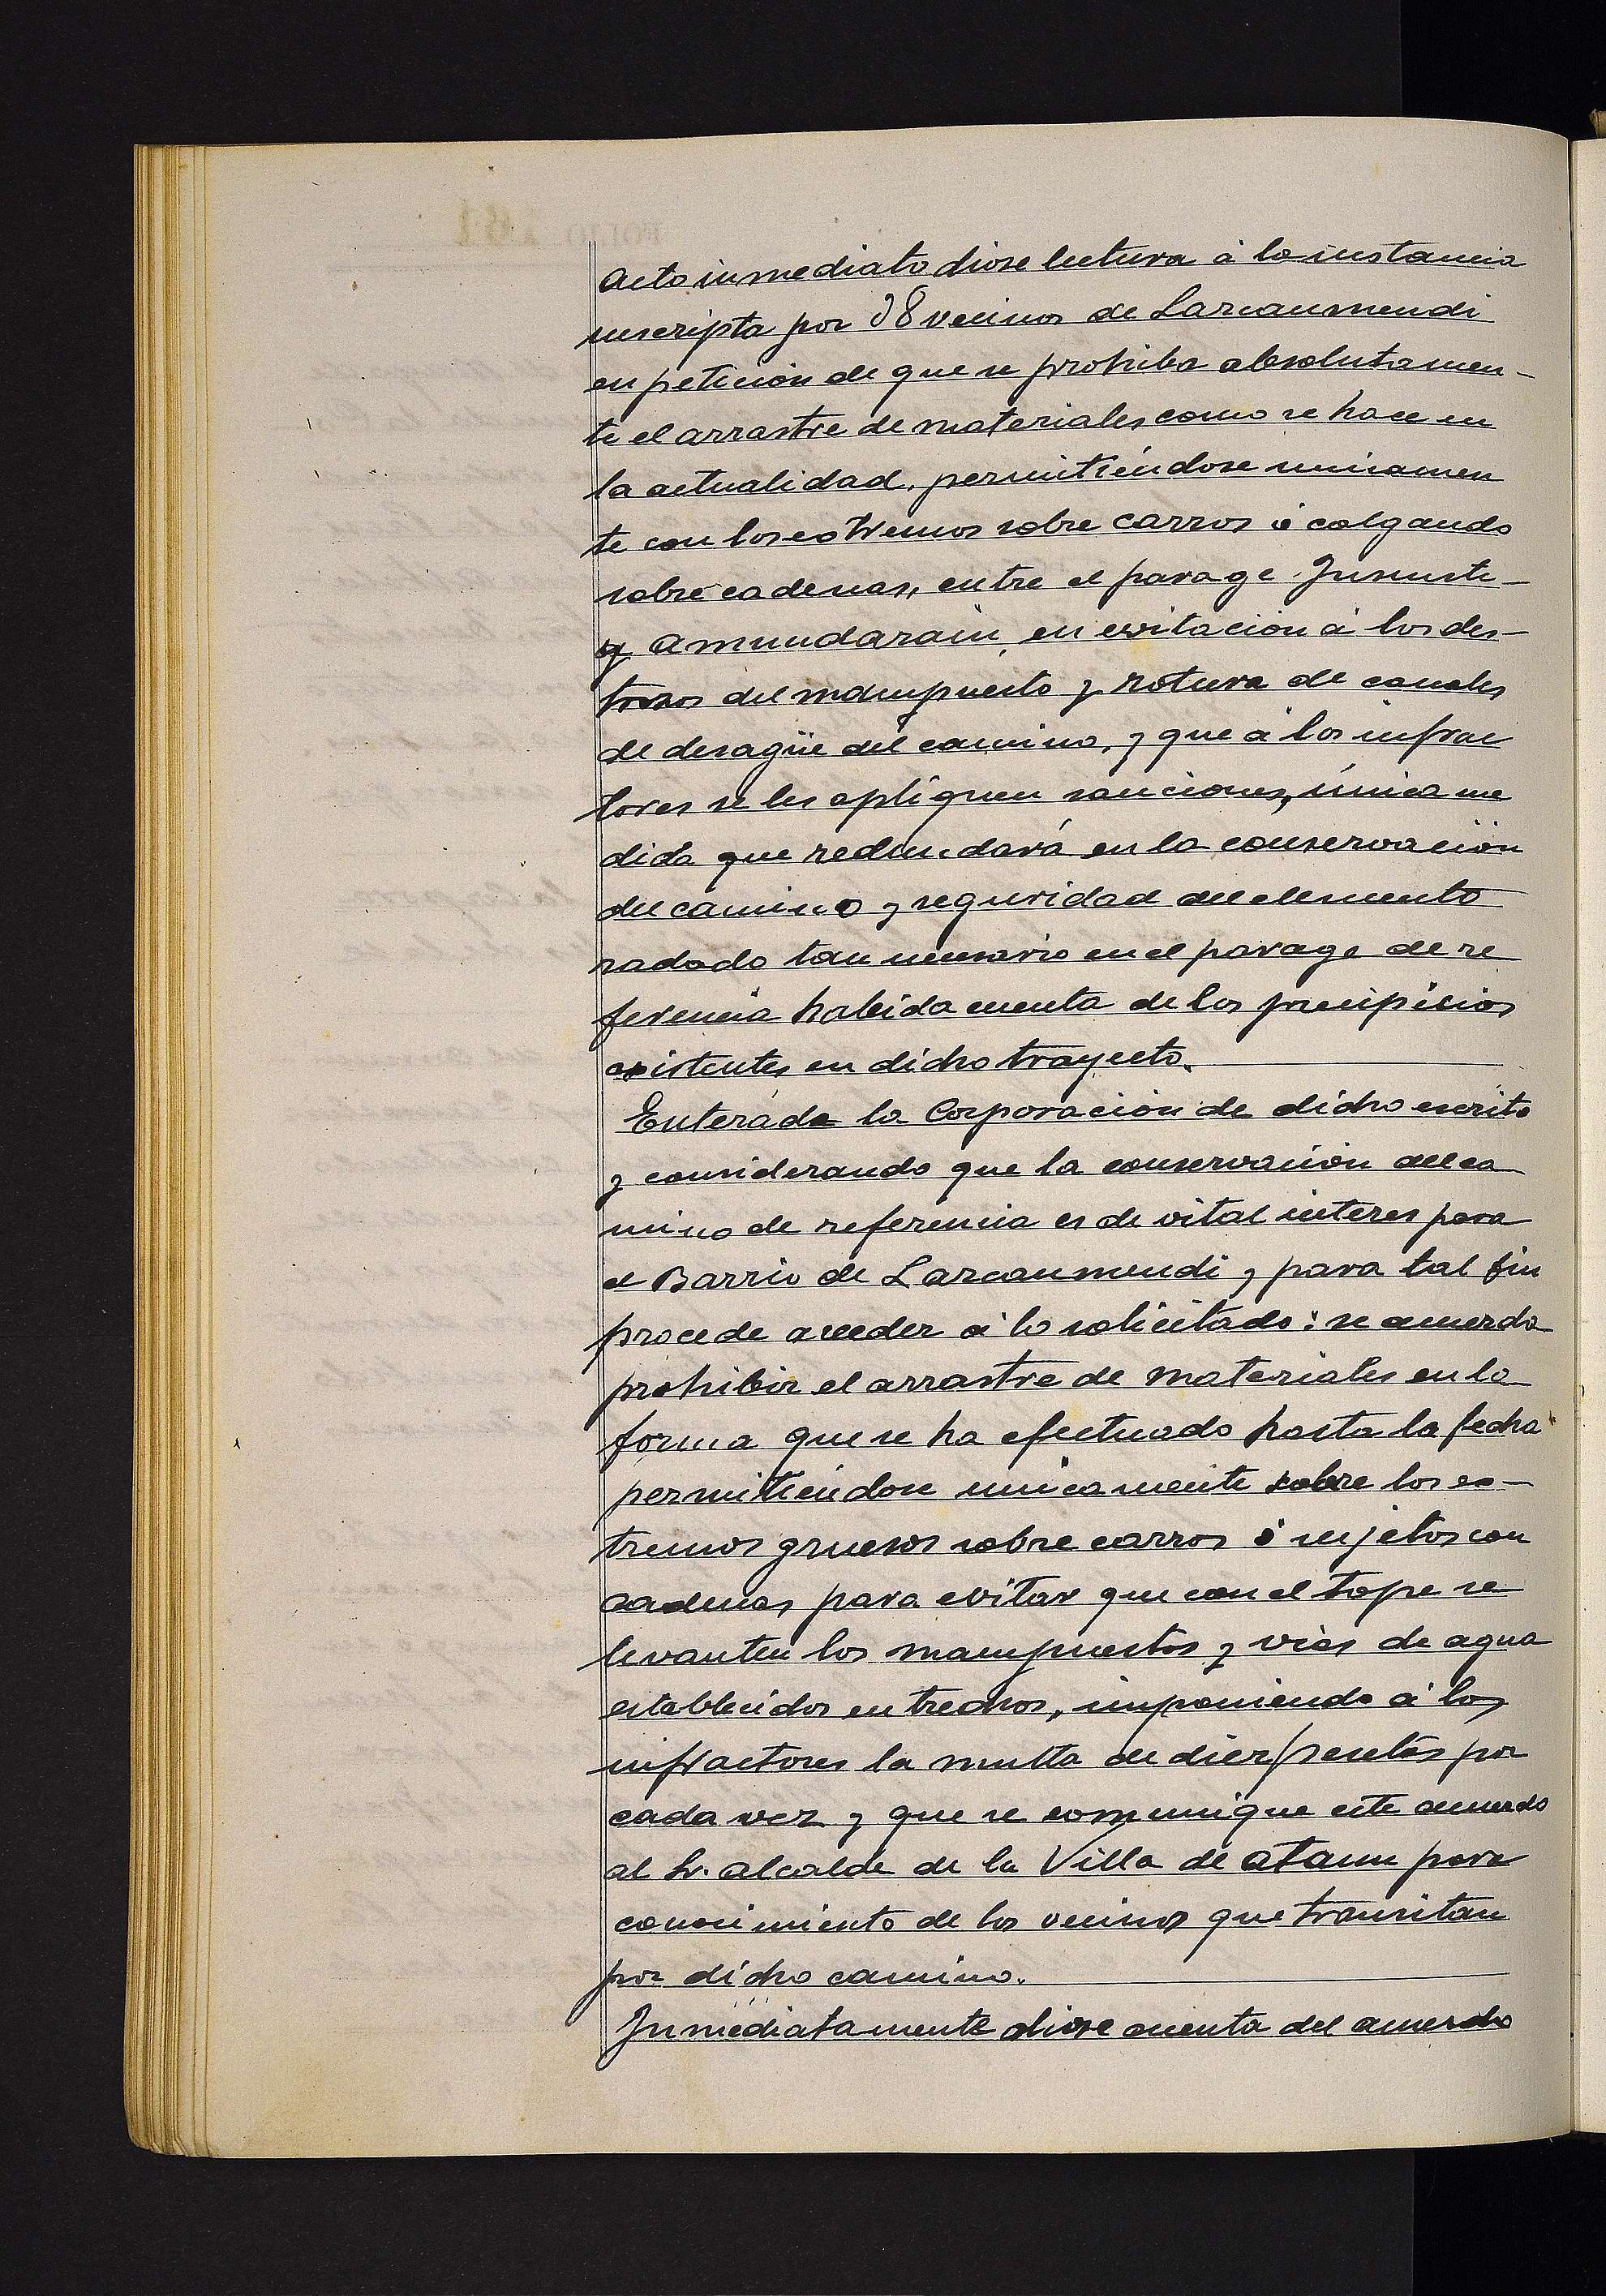 Acto inmediato diose lectura á la instancia
suscripta por 38 vecinos de Larcaumendi
en petición de que se prohiba absolutamen-
te el arrastre de materiales como se hace en
la actualidad, permitiéndose unicamen
te con los estremos sobre carros ó colgando
sobre cadenas, entre el parage
y Amundarain, en evitación á los des-
trosos del mampuesto y rotura de canales
de desagüe del camino, y que á los infrac
tores se les apliquen sanciones, única me
dida que redundará en la conservación
del camino y seguridad del elemento
rodado tan necesario en el parage de re
ferencia habida cuenta de los precipicios
existentes en dicho trayecto.
Enterada la Corporación de dicho escrito
y considerando que la conservación del ca
mino de referencia es de vital interes para
el Barrio de Larcaumendi y para tal fin
procede acceder á lo solicitado: se acuerda
prohibir el arrastre de materiales en la
forma que se ha efectuado hasta la fecha
permitiéndose unicamente sobre los es-
tremos gruesos sobre carros ó sujetos con
cadenas para evitar que con el tope se
levanten los mampuestos y vias de agua
establecidos en trechos, imponiendo á los
infractores la multa de diez pesetas por
cada vez y que se comunique este acuerdo
al Sr. alcalde de la Villa de Ataun para
conocimiento de los vecinos que transitan
por dicho camino.
Inmediatamente diose cuenta del acuerdo